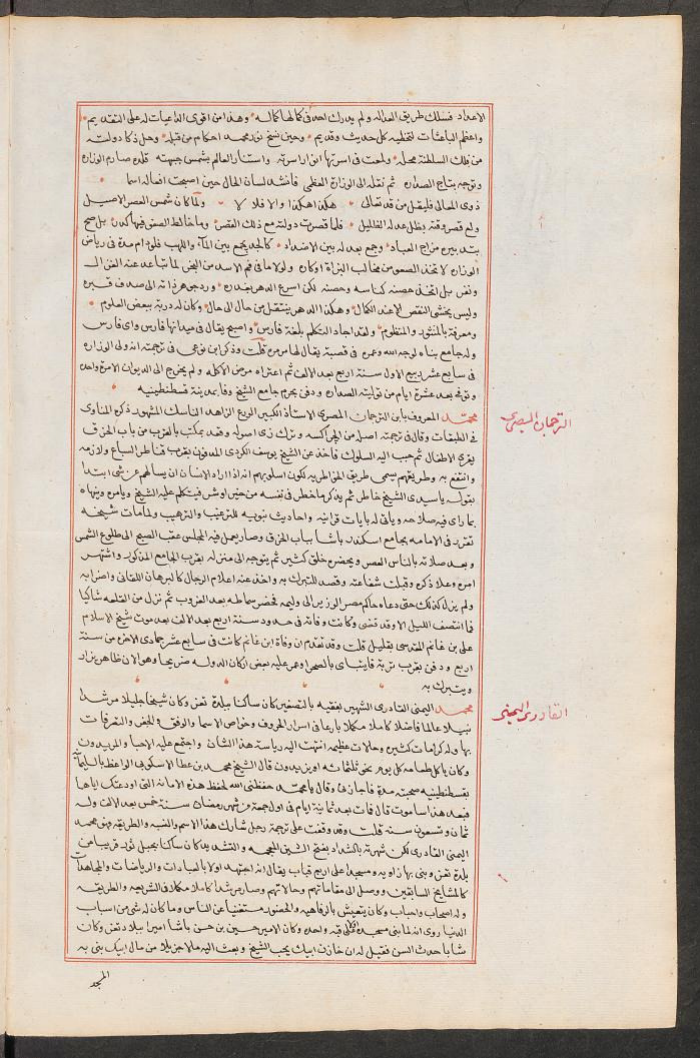 الاعداد فسلك طريق العداله ولم يدرك احد فى كمالها كماله وهذا من اقوى الداعيات له على التقديم
واعظم الباعثات لتحليه كل حديث وقديم وحين نسخ نور محمد احكام من قبله وحل ذكا دولته
من فلك السلطنة محله ولمعت فى اسرتها انوار اسرته واستنار العالم بشمس جبهته قلده صارم الوزاره
وتوجه بتاج الصداره ثم نقله الى الوزارة العظمى فانشد لسان الحال حين اصبحت افعاله اسما
ذوى المعالى فليعل من قد تعالى هكذا هكذا والا فلا لا ولما كان شمس العصر الاصيل
ولم قصر وقته بظل عدله الظليل فلما قصرت دولته مع ذلك القصر وما خالط الصفو فيها كدر بل صح
بتدبيره مزاج العباد وجمع بعدله بين الاضداد كالجد يجمع بين الماء واللهب فلو دام مدة فى رياض
الوزاره لاتخذ الصعو من مخالب البزاة اوكاره ولولا ما فى فم الاسد من البخر لما تباعد عنه الغزال
ونفر بل اتخذ حصنه كناسه وحصنه لكن اسرع الدهر بغدره ورد جوهر ذاته الى صدف قبره
وليس يخشى النقص الا عند الكمال وهكذا الدهر ينتقل من حال الى حال وكان له دربة ببعض العلوم
ومعرفة بالمنثور والمنظوم ولقد اجاد التكلم بلغة فارس واصبح يقال فى ميدانها فارس واى فارس
وله جامع بناه لوجه الله وعمره فى قصبة يقال لها مرمره قلت وذكر ابن نوعى فى ترجمته انه ولى الوزاره
فى سابع عشر ربيع الاول سنة اربع بعد الالف ثم اعتراه مرض الاكله ولم يخرج الى الديوان الا مرة واحده
وتوفى بعد عشرة ايام من توليته الصداره ودفن بحرم جامع الشيخ وفا بمدينة قسطنطينيه
محمد المعروف بابن الترجمان المصرى الاستاذ الكبير الورع الزاهد الناسك المشهور ذكره المناوى
الترجمان المصرى
فى الطبقات وقال فى ترجمته اصله من الجراكسه وترك زى اصوله وقعد بمكتب بالقرب من باب الخرق
يقرى الاطفال ثم حبب اليه السلوك فاخذ عن الشيخ يوسف الكردى المدفون بقرب قناطر السباع ولازمه
وانتفع به وطريقهم يسمى طريق الخواطريه لكون اسلوبهم انه اذا اراد الانسان ان يسالهم عن شى ابتدا
بقوله ياسيدى الشيخ خاطر ثم يذكر ما خطر فى نفسه من خير او شر فيتكلم عليه الشيخ ويامره وينهاه
بما راى فيه صلاحه ويأتى له بايات قرانيه واحاديث نبويه للترغيب والترهيب ولما مات شيخه
تقرر فى الامامه بجامع اسكندر باشا بباب الخرق وصار يعمل فيه المجلس عقب الصبح الى طلوع الشمس
وبعد صلاته بالناس العصر ويحضره خلق كثير ثم يتوجه الى منزله بقرب الجامع المذكور واشتهر
امره وعلا ذكره وقبلت شفاعته وقصد للتبرك به واخذ عنه اعلام الرجال كالبرهان اللقانى واضرابه
ولم يزل كذلك حتى دعاه حاكم مصر الوزير الى وليمه فحضر سماطه بعد الغروب ثم نزل من القلعه شاكيا
فما انتصف الليل الا وقد قضى وكانت وفاته فى حدود سنة اربع بعد الالف بعد موت شيخ الاسلام
على بن غانم المقدسى بقليل قلت وقد تقدم ان وفاة ابن غانم كانت فى سابع عشر جمادى الاخره من سنة
اربع ودفن بقرب تربة قايتباى بالصحرا وعمر عليه بعض اركان الدوله ضريحا وهو الان ظاهر يزار
ويتبرك به
محمد اليمنى القادرى الشهير بفقيه بالتصغير كان ساكنا ببلدة تعز وكان شيخا جليلا مرشدا
القادرى اليمنى
نبيلا عالما فاضلا كاملا مكملا بارعا فى اسرار الحروف وخواص الاسما والوفق والجفر والتصرفات
بها وله كرامات كثيره وحالات عظيمه انتهت اليه رياسة هذا الشان واجتمع عليه الاحبا والمريدون
وكان ياكل طعامه كل يوم نحو ثلثمائه او يزيدون قال الشيخ محمد بن عطا الاسكوبى الواعظ بالسليمانيه
بقسطنطينيه صحبته مدة فاجازنى وقال يا محمد حفظنى الله لحفظ هذه الامانه التى اودعتك اياها
فبعد هذا ساموت قال فمات بعد ثمانية ايام فى اول جمعة من شهر رمضان سنة خمس بعد الالف وله
ثمان وتسعون سنه قلت وقد وقفت على ترجمة رجل شارك هذا الاسم والنسبه والطريقه وهو محمد
اليمنى القادرى لكن شهرته باكشداد بفتح الشين المعجمه والتشديد كان ساكنا بجبل ثور قريبا من
بلدة تعز وبنى بها زاويه ومسجدا على اربع قباب يقال انه اجتهد اولا بالعبادات والرياضات والمجاهدات
كالمشايخ السابقين ووصل الى مقاماتهم وحالاتهم وصار مرشدا كاملا مكملا فى الشريعه والطريقه
وله اصحاب واحباب وكان يتعيش بالرفاهيه والحضور مستغنيا عن الناس وما كان له شى من اسباب
الدنيا روى انه لما بنى مسجده قبة واحده وكان الامير حسين بن حسن باشا اميرا ببلاد تعز وكان
شابا حدث السن فقيل له ان خازن ابيك يحب الشيخ وبعث اليه مالا جزيلا من مال ابيك بنى به
المسجد